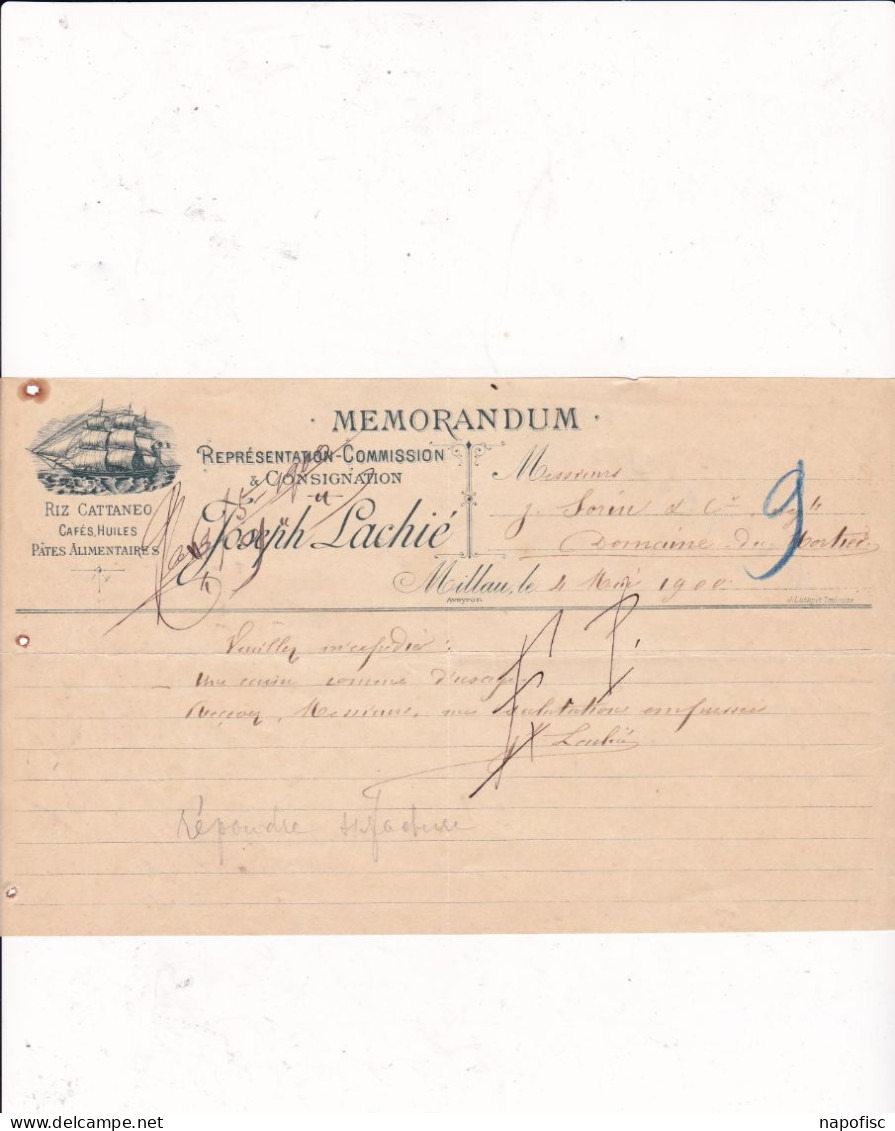 · MEMORANDUM ·
REPRÉSENTATION-COMMISSION
& CONSIGNATION
Joseph Lachié
RIZ CATTANEO
CAFÉS, HUILES
PÂTES ALIMENTAIRES
Messieurs
J. Sorin & Cie
Domaine du Mortier
9
Millau, le 4 Mai 1900
Aveyron
Veuillez m'expédier :
une caisse comme d'usage
Recevez, Messieurs, mes salutations empressées
Jh Lachié
Répondre facture
napofisc